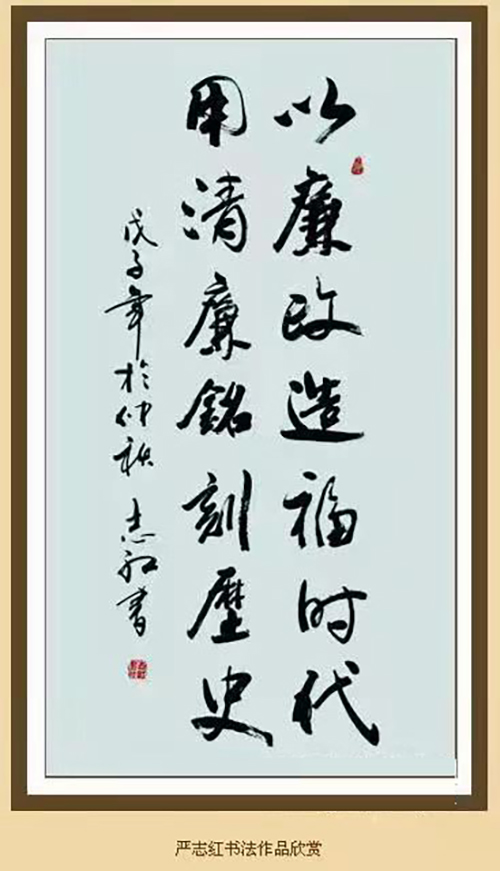 以廉政造福时代
用清廉銘刻歷史
戊子年於仲秋 志紅書
严志红书法作品欣赏